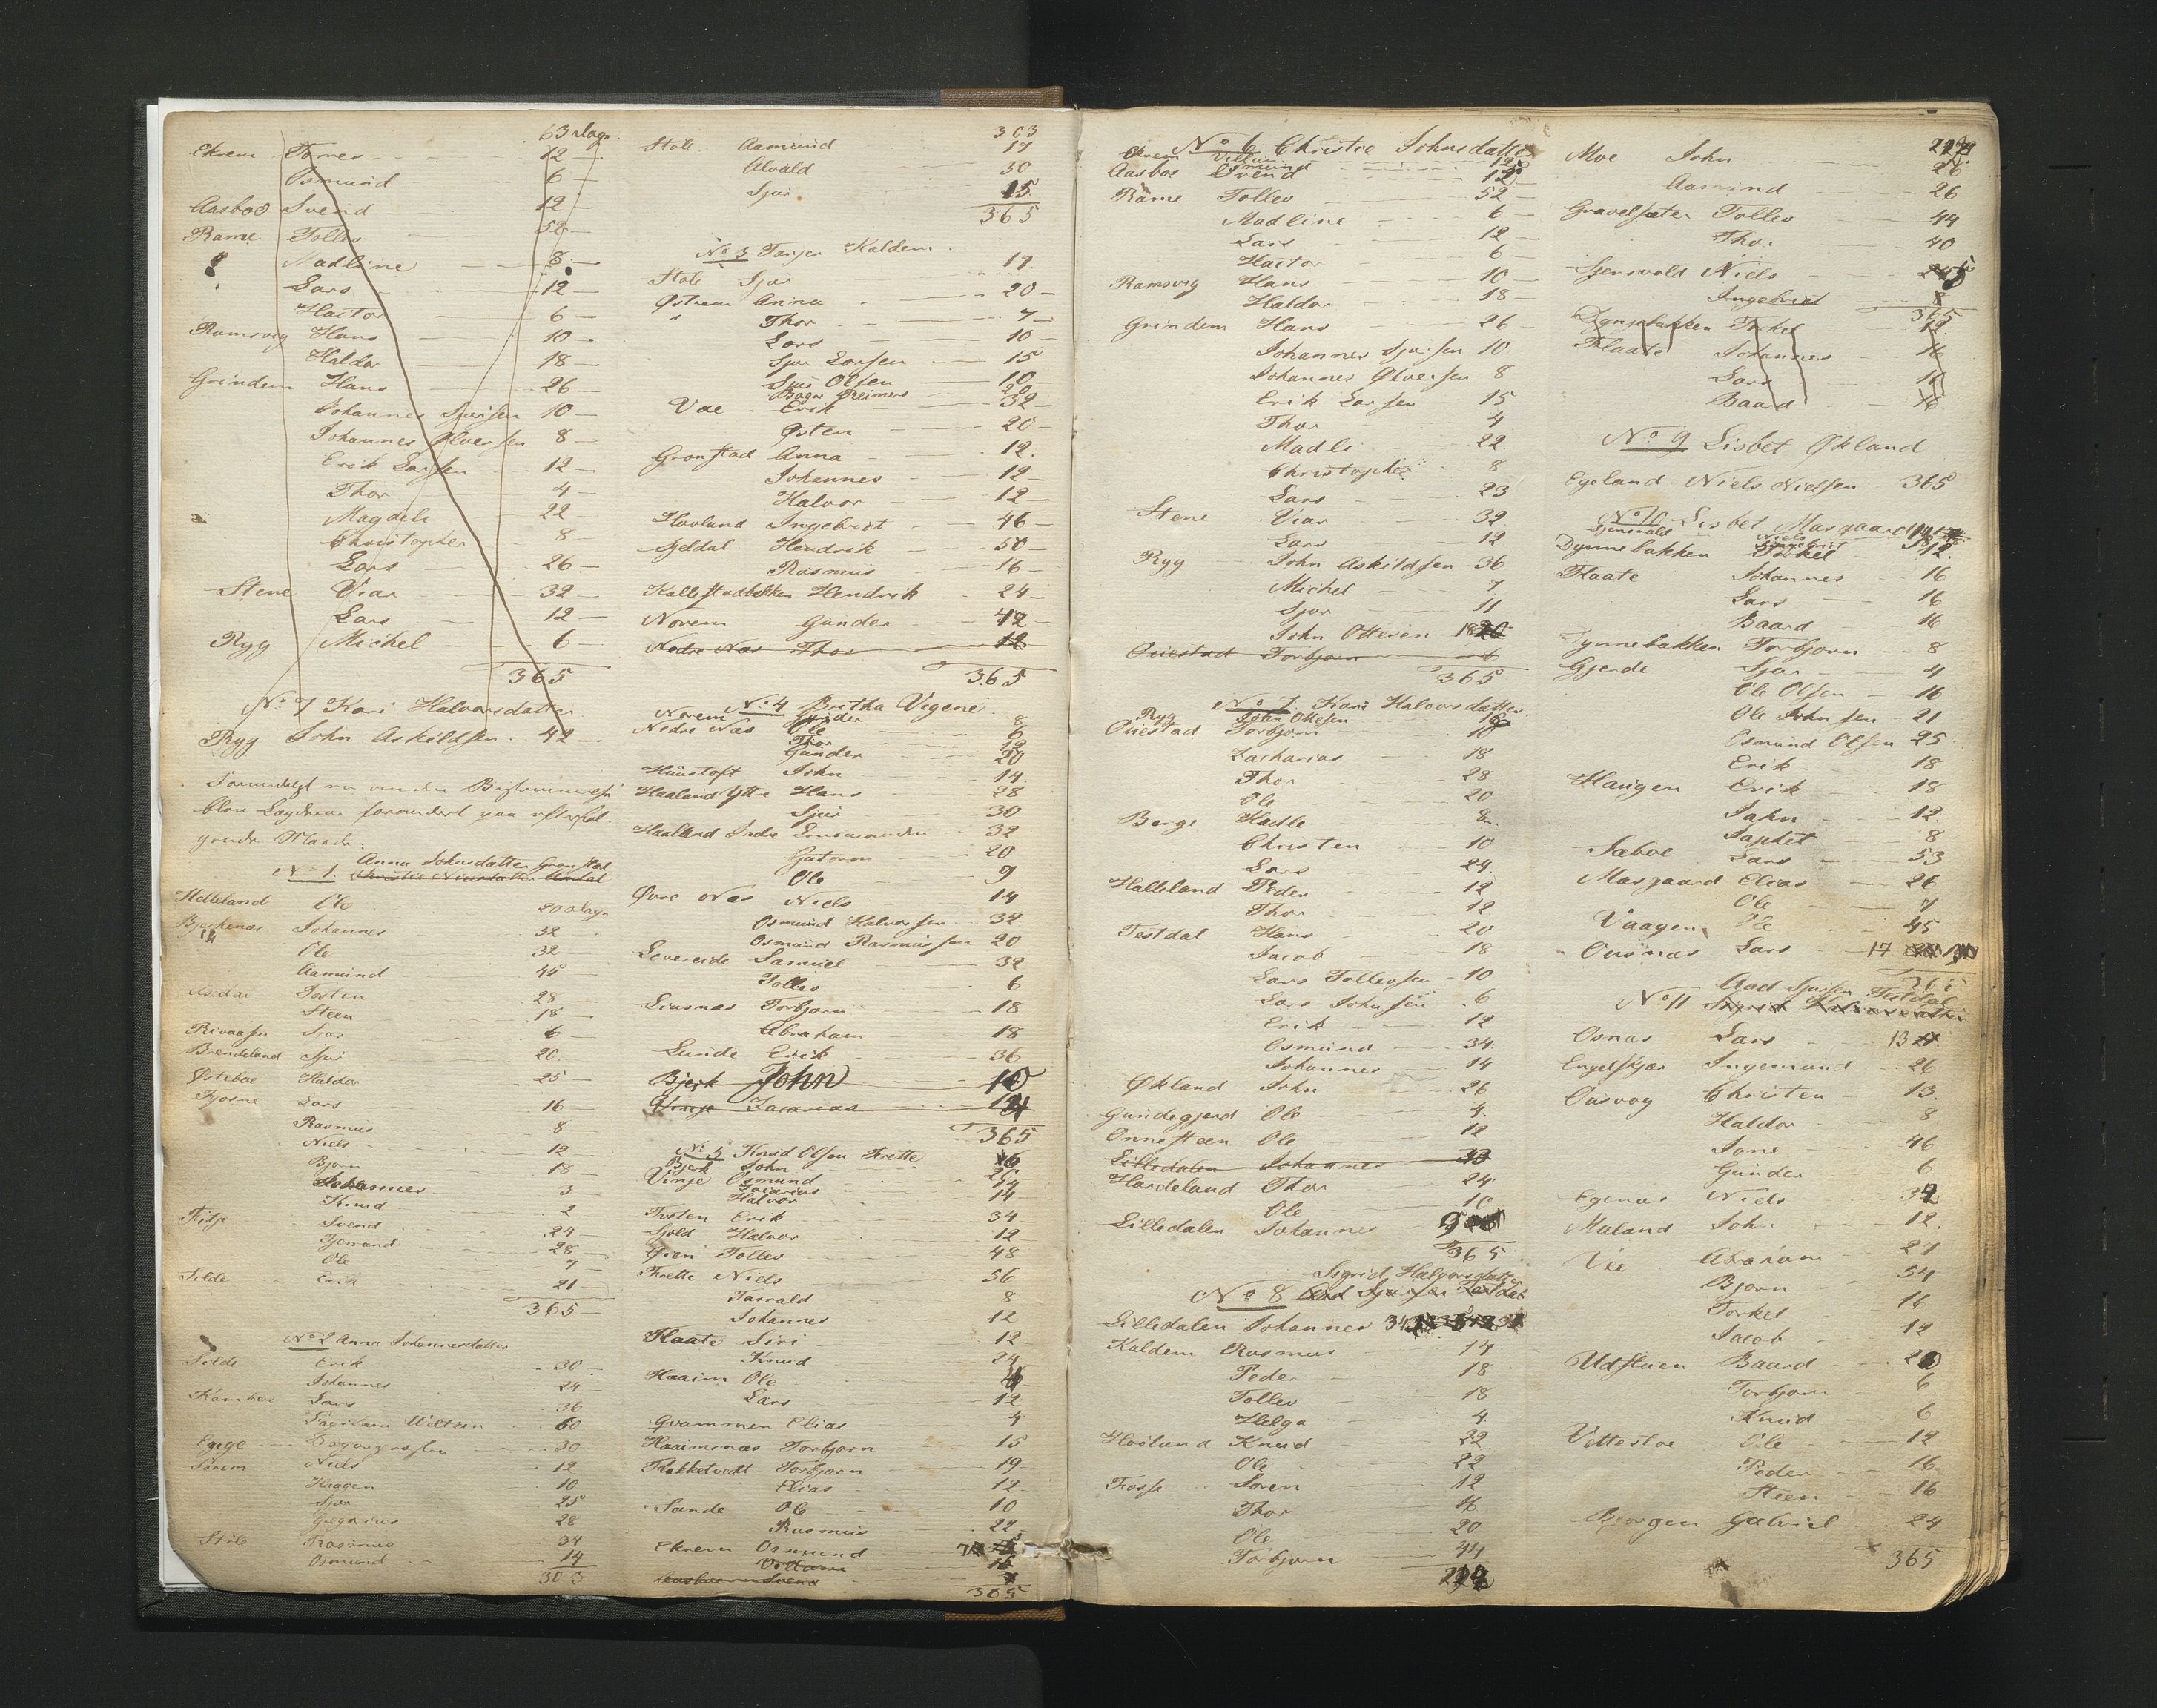 63 alagr.
Ekrem Tørres 12
Osmund 6
Aasboe Svend 12
Rame Tollev 52
Madline 8
Lars 12
Hactor 6
Ramsvig Hans 10
Haldor 18
Grindem Hans 26
Johannes Sjursen 10
Johannes Ølversen 8
Erik Larsen 12
Thor 4
Magdeli 22
Christopher 8
Lars 26
Stene Viar 32
Lars 12
Ryg Michel 6
365
No 7 Kari Halvorsdatter
Ryg John Askildsen 42
blev Lægderne forandret paa efterføl-
gende Maade.
Anna Johnsdatter Grønstad
No 1.
Helleland Ole 20 alagr
Bjerkenæs Johannes 32
Ole 32
Aamund 45
Tosten 28
Steen 18
Sjur 6
Brendeland Sjur 20
Østeboe Haldor 25
Fjosne Lars 16
Rasmus 8
Niels 12
Bjørn 18
Johannes 3
Knud 2
Fitje Svend 24
Tjerrand 28
Ole 7
Silde Erik 21
365
No 2 Anna Johannesdatter
Silde Erik 30
Johannes 24
Kamboe Lars 36
60
Enge 30
Sørem Niels 12
Haagen 10
Sjur 25
Gregorius 28
Støle Rasmus 34
Osmund 14
303
303
Støle Aamund 17
Alvald 30
Sjur 15
365
No 3 Kaldem
Støle Sjur 17
Østrem Anna 20
Thor 7
Lars 10
Sjur Larsen 15
Sjur Olsen 10
Reimers 20
Vae Erik 32
Østen 20
Grønstad Anna 12
Johannes 12
Halvor 12
Hovland Ingebret 46
Sjeldal Hendrik 50
Rasmus 16
Kallestadbakken Hendrik 24
Norem Gunder 42
Nedre Næs Thor 12
365
No 4 Britha Vigene
Norem Gunder 8
Nedre Næs Ole 6
Thor 12
Gunder 20
Hustoft John 14
Haaland Ytre Hans 28
Sjur 30
Haaland Indre 32
Gutorm 20
Ole 9
Øvre Næs Niels 14
Osmund Halvorsen 32
Osmund Rasmussen 20
Levereide Samuel 32
Tollev 6
Liusnæs Torbjørn 18
Abraham 18
Lunde Erik 36
Bjerk John 10
Vinje Zacarias
365
No 5 Knud Olsen Frette
Bjerk John 6
Vinje Osmund
Zacarias 14
Halvor 14
Tveten Erik 34
Sjold Halvor 12
Øien Tollev 48
Frette Niels 56
Tarrald 8
Johannes 12
Flaate Siri 12
Knud 24
Haaim Ole
Lars 12
Qvammen Elias 4
Haaimnæs Torbjørn 15
Flakketvedt Torbjørn 19
Elias 12
Sande Ole 10
Rasmus 22
Ekrem Osmund
Villum
Aasboe Svend
365
No 6 Christie Johnsdatter
Ekrem Villum
Osmund 12
Aasboe Svend 12
Rame Tollev 52
Madline 6
Lars 12
Hactor 6
Ramsvig Hans 10
Haldor 18
Grindem Hans 26
Johannes Sjursen 10
Johannes Ølversen 8
Erik Larsen 15
Thor 4
Madli 22
Christopher 8
Lars 23
Stene Viar 32
Lars 12
Ryg John Askildsen 36
Michel 7
Sjur 11
John Ottesen 18
Ouestad Torbjørn 6
365
No 7. Kari Halvorsdatter
Ryg John Ottesen
Ouestad Torbjørn 10
Zacharias 18
Thor 28
Ole 20
Berge Hadle 8
Christen 10
Lars 24
Halleland Peder 12
Thor 12
Testdal Hans 20
Jacob 18
Lars Tollevsen 10
Lars Johnsen 6
Erik 12
Osmund 34
Johannes 14
Økland John 26
Gundegjerd Ole 4
Onnesteen Ole 12
Lilledalen Johannes 33
Hardeland Thor 24
Ole 10
Lilledalen Johannes 9
365
Sigrid Halvorsdatter
No 8 Aad Sjursen Testdal
Lilledalen Johannes 34
Kaldem Rasmus 14
Peder 18
Tollev 18
Helga 4
Høiland Knud 22
Ole 22
Fosse Søren 12
Thor 16
Ole 20
Torbjørn 44
224
Moe John 26
Aamund 26
Gravelsæter Tollev 44
Thor 40
Sjensvold Niels
Ingebrit 8
365
Dynnebakken Torkel 12
Flaate Johannes 16
Lars 16
Baard 16
No 9 Lisbet Økland
Egeland Niels Nielsen 365
No 10 Lisbet Masgaard
Sjensvold Niels
Ingebrit
Dynnebakken Torkel 12
Flaate Johannes 16
Lars 16
Baard 16
Dynnebakken Torbjørn 8
Gjerde Sjur 4
Ole Olsen 16
Ole Johnsen 21
Osmund Olsen 25
Erik 18
Haugen Erik 18
John 12
Japhet 8
Sæboe Lars 53
Masgaard Elias 26
Ole 7
Vaagen Ole 45
Ousnæs Lars 17
365
Aad Sjursen Testdal
No 11 Sigrid Halvorsdatter
Osnæs Lars 13
Engelskjær Ingemund 26
Ousvog Christen 13
Haldor 8
Jone 46
Gunder 6
Egenæs Niels 32
Maland John 12
Vee Abraham 27
Bjørn 54
Torkel 16
Jacob 12
Udstuen Baard 20
Torbjørn 6
Knud 6
Vettestøe Ole 12
Peder 16
Steen 16
Bjorgen Gabriel 24
365